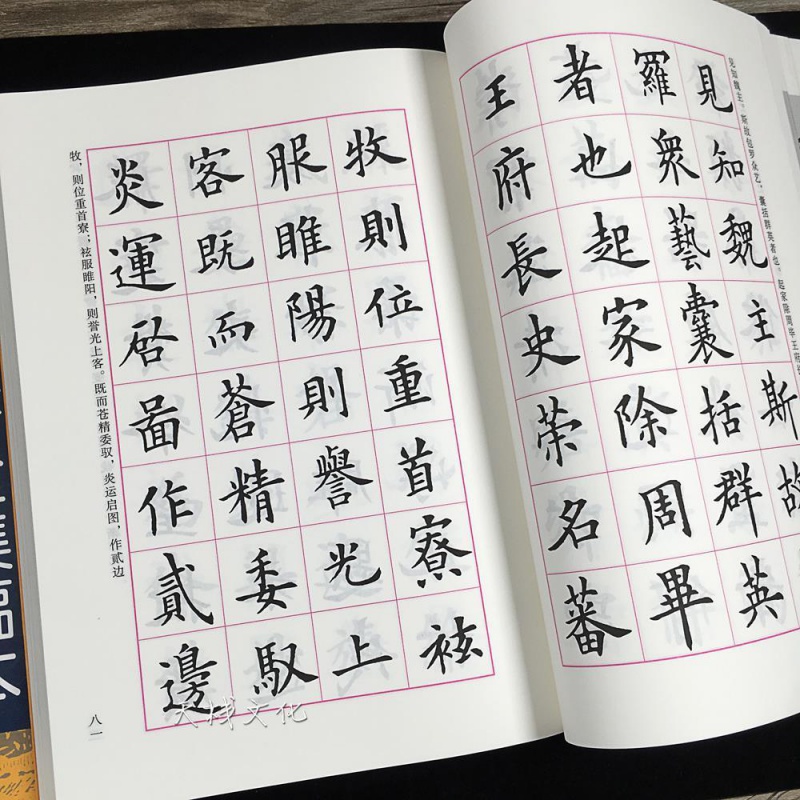 见知魏主。斯故包罗众艺，囊括群英者也。起家除周毕王府
見知魏主斯故
羅衆藝囊括群英
者也起家除周畢
王府長史荣名蕃
牧則位重首寮袨
服睢陽則譽光上
客既而蒼精委馭
炎運启啚作貳邊
牧，则位重首寮；袨服睢阳，则誉光上客。既而苍精委驭，炎运启图，作贰边
八一